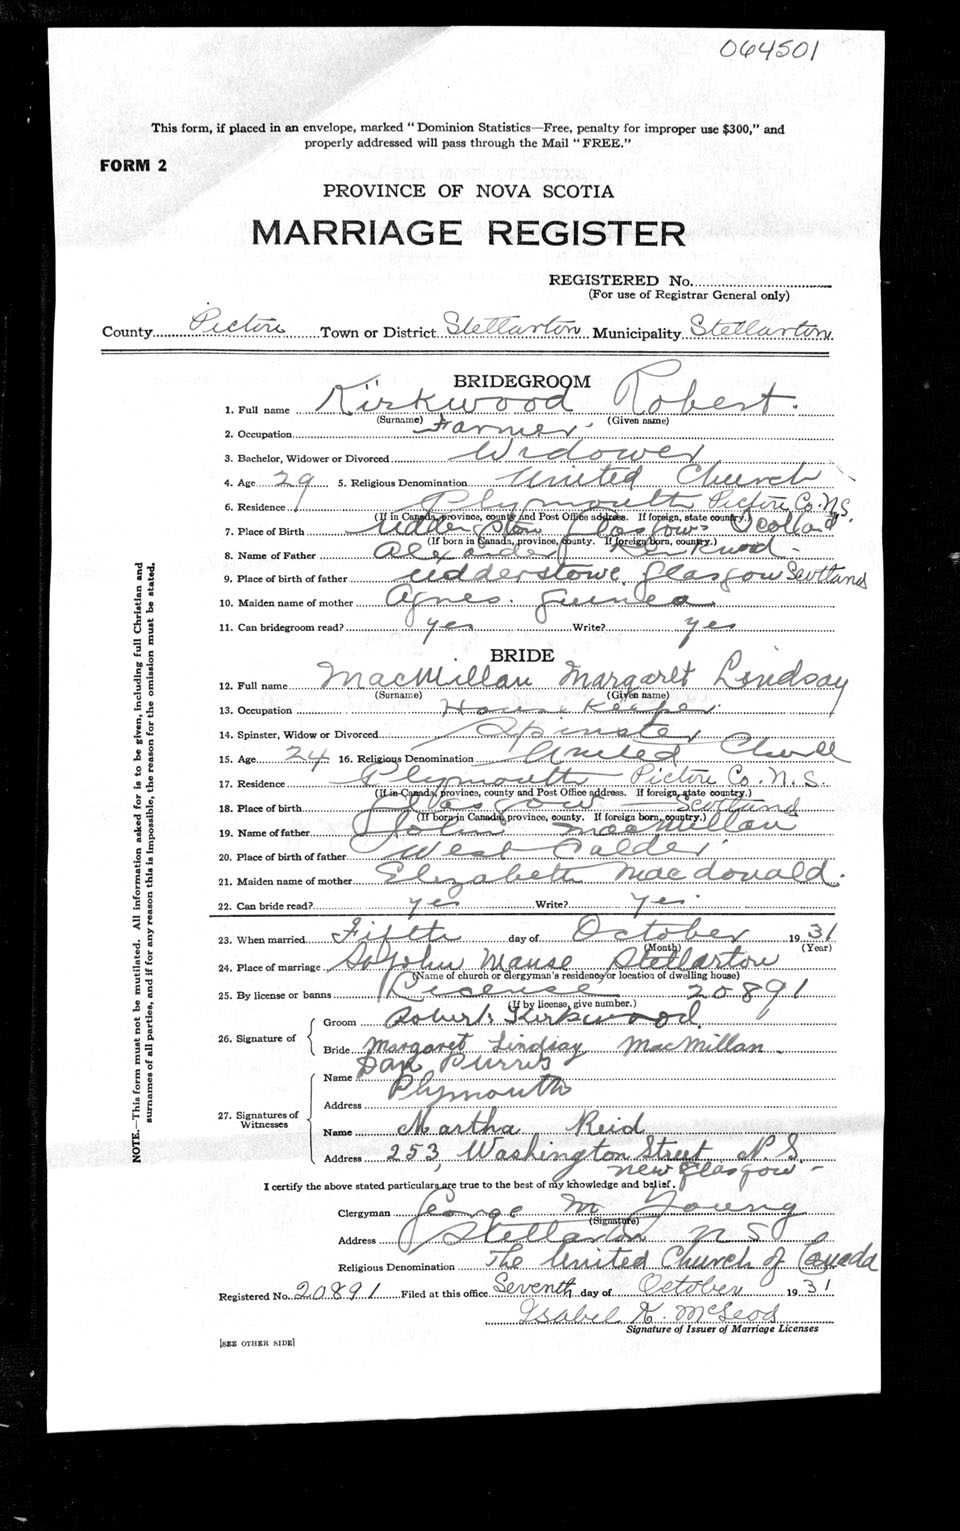 064501
This form, if placed in an envelope, marked "Dominion Statistics—Free, penalty for improper use $300," and
properly addressed will pass through the Mail "FREE."
FORM 2
PROVINCE OF NOVA SCOTIA
MARRIAGE REGISTER
REGISTERED No.
(For use of Registrar General only)
County Pictou Town or District Stellarton Municipality Stellarton
BRIDEGROOM
1. Full name Kirkwood Robert
(Surname) (Given name)
2. Occupation Farmer
3. Bachelor, Widower or Divorced Widower
4. Age 29 5. Religious Denomination United Church
6. Residence Plymouth Pictou Co. N.S.
(If in Canada, province, county and Post Office address. If foreign, state country.)
7. Place of Birth Glasgow Scotland
(If born in Canada, province, county. If foreign born, country.)
8. Name of Father Alexander Kirkwood
9. Place of birth of father Udderstowe, Glasgow Scotland
10. Maiden name of mother Agnes
11. Can bridegroom read? yes Write? yes
BRIDE
12. Full name MacMillan Margaret Lindsay
(Surname) (Given name)
13. Occupation House Keeper
14. Spinster, Widow or Divorced Spinster
15. Age 24 16. Religious Denomination United
17. Residence Plymouth Pictou Co. N.S.
(If in Canada, province, county and Post Office address. If foreign, state country.)
18. Place of birth Glasgow Scotland
(If born in Canada, province, county. If foreign born, country.)
19. Name of father John MacMillan
20. Place of birth of father West Calder
21. Maiden name of mother Elizabeth Macdonald.
22. Can bride read? yes Write? yes
23. When married Fifth day of October 1931
(Month) (Year)
24. Place of marriage John Manse Stellarton
(Name of church or clergyman's residency or location of dwelling house)
25. By license or banns License 20891
(If by license, give number.)
26. Signature of
Groom Robert Kirkwood
Bride Margaret Lindsay MacMillan
27. Signatures of Witnesses
Name Dan Purvis
Address Plymouth
Name Martha Reid
Address 253, Washington Street N.S.
New Glasgow
I certify the above stated particulars are true to the best of my knowledge and belief.
Clergyman George M Young
(Signature)
Address Stellarton N S
Religious Denomination The United Church of Canada
Registered No. 20891 Filed at this office Seventh day of October 1931
Isabel K. McLeod
Signature of Issuer of Marriage Licenses
[SEE OTHER SIDE]
NOTE.—This form must not be mutilated. All information asked for is to be given, including full Christian and
surnames of all parties, and if for any reason this is impossible, the reason for the omission must be stated.